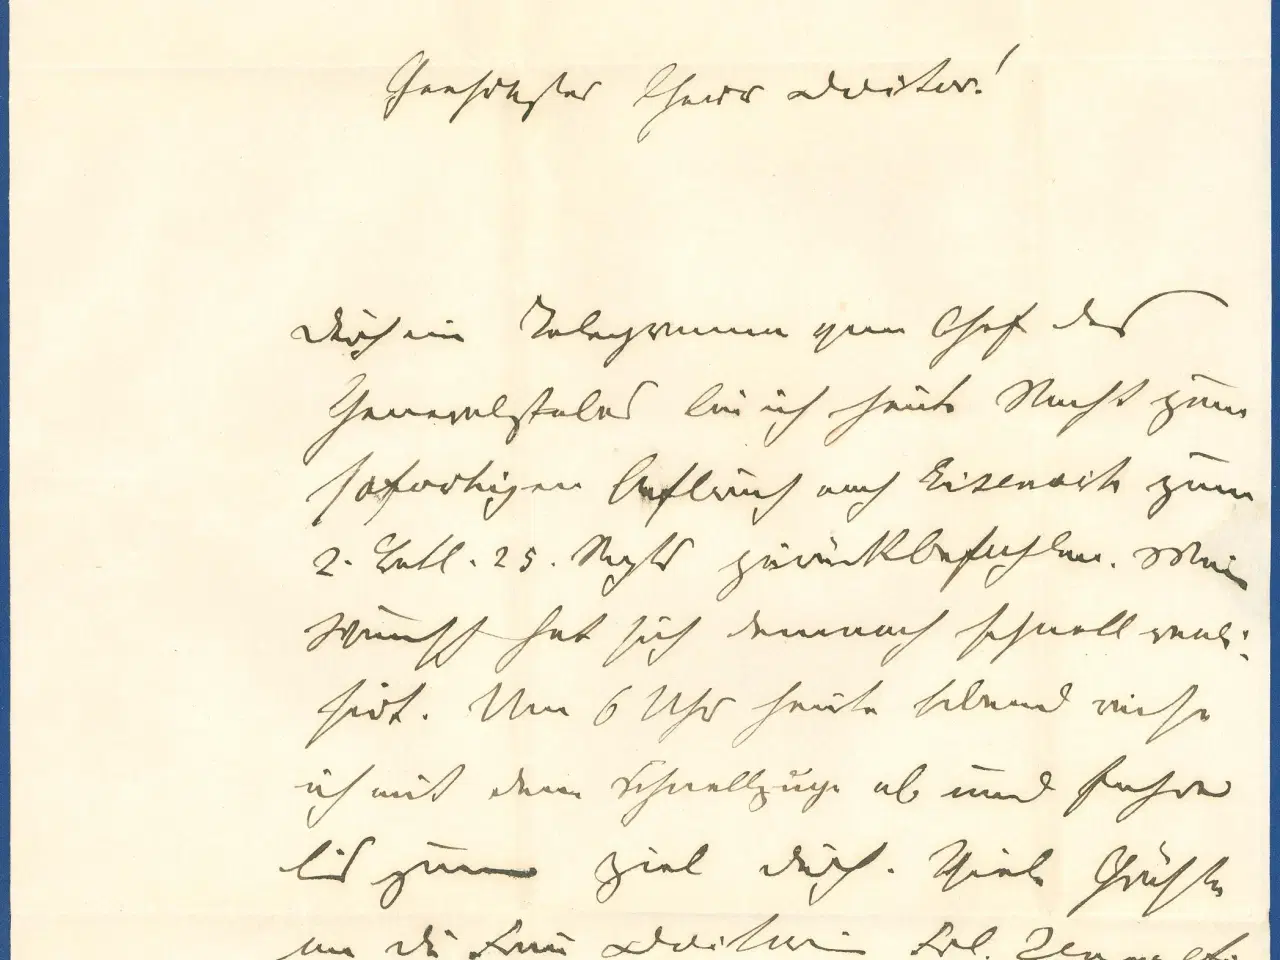 Geehrtester Herr Doctor!
Durch ein Telegramm vom Chef des
Generalstabes bin ich heute Nacht zum
sofortigen Aufbruch nach Eisenach zum
2. Batl. 25. Regts zurückbefohlen. Mein
Wunsch hat sich demnach schnell reali:
sirt. Um 6 Uhr heute Abend reise
ich mit dem Schnellzuge ab und fahre
bis zum Ziel durch. Viele Grüße
an die Frau Doctorin Frl.